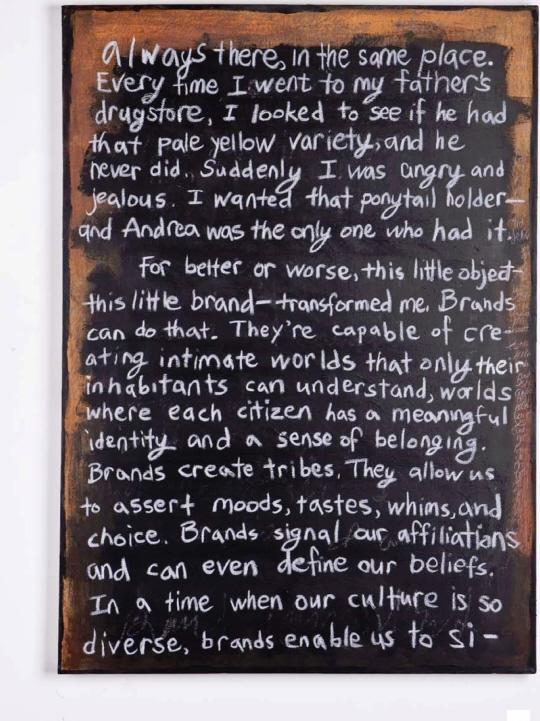 always there, in the same place.
Every time I went to my father's
drugstore, I looked to see if he had
that pale yellow variety, and he
never did. Suddenly I was angry and
jealous. I wanted that ponytail holder—
and Andrea was the only one who had it.
For better or worse, this little object—
this little brand—transformed me. Brands
can do that. They're capable of cre-
ating intimate worlds that only their
inhabitants can understand, worlds
where each citizen has a meaningful
identity and a sense of belonging.
Brands create tribes. They allow us
to assert moods, tastes, whims, and
choice. Brands signal our affiliations
and can even define our beliefs.
In a time when our culture is so
diverse, brands enable us to si-